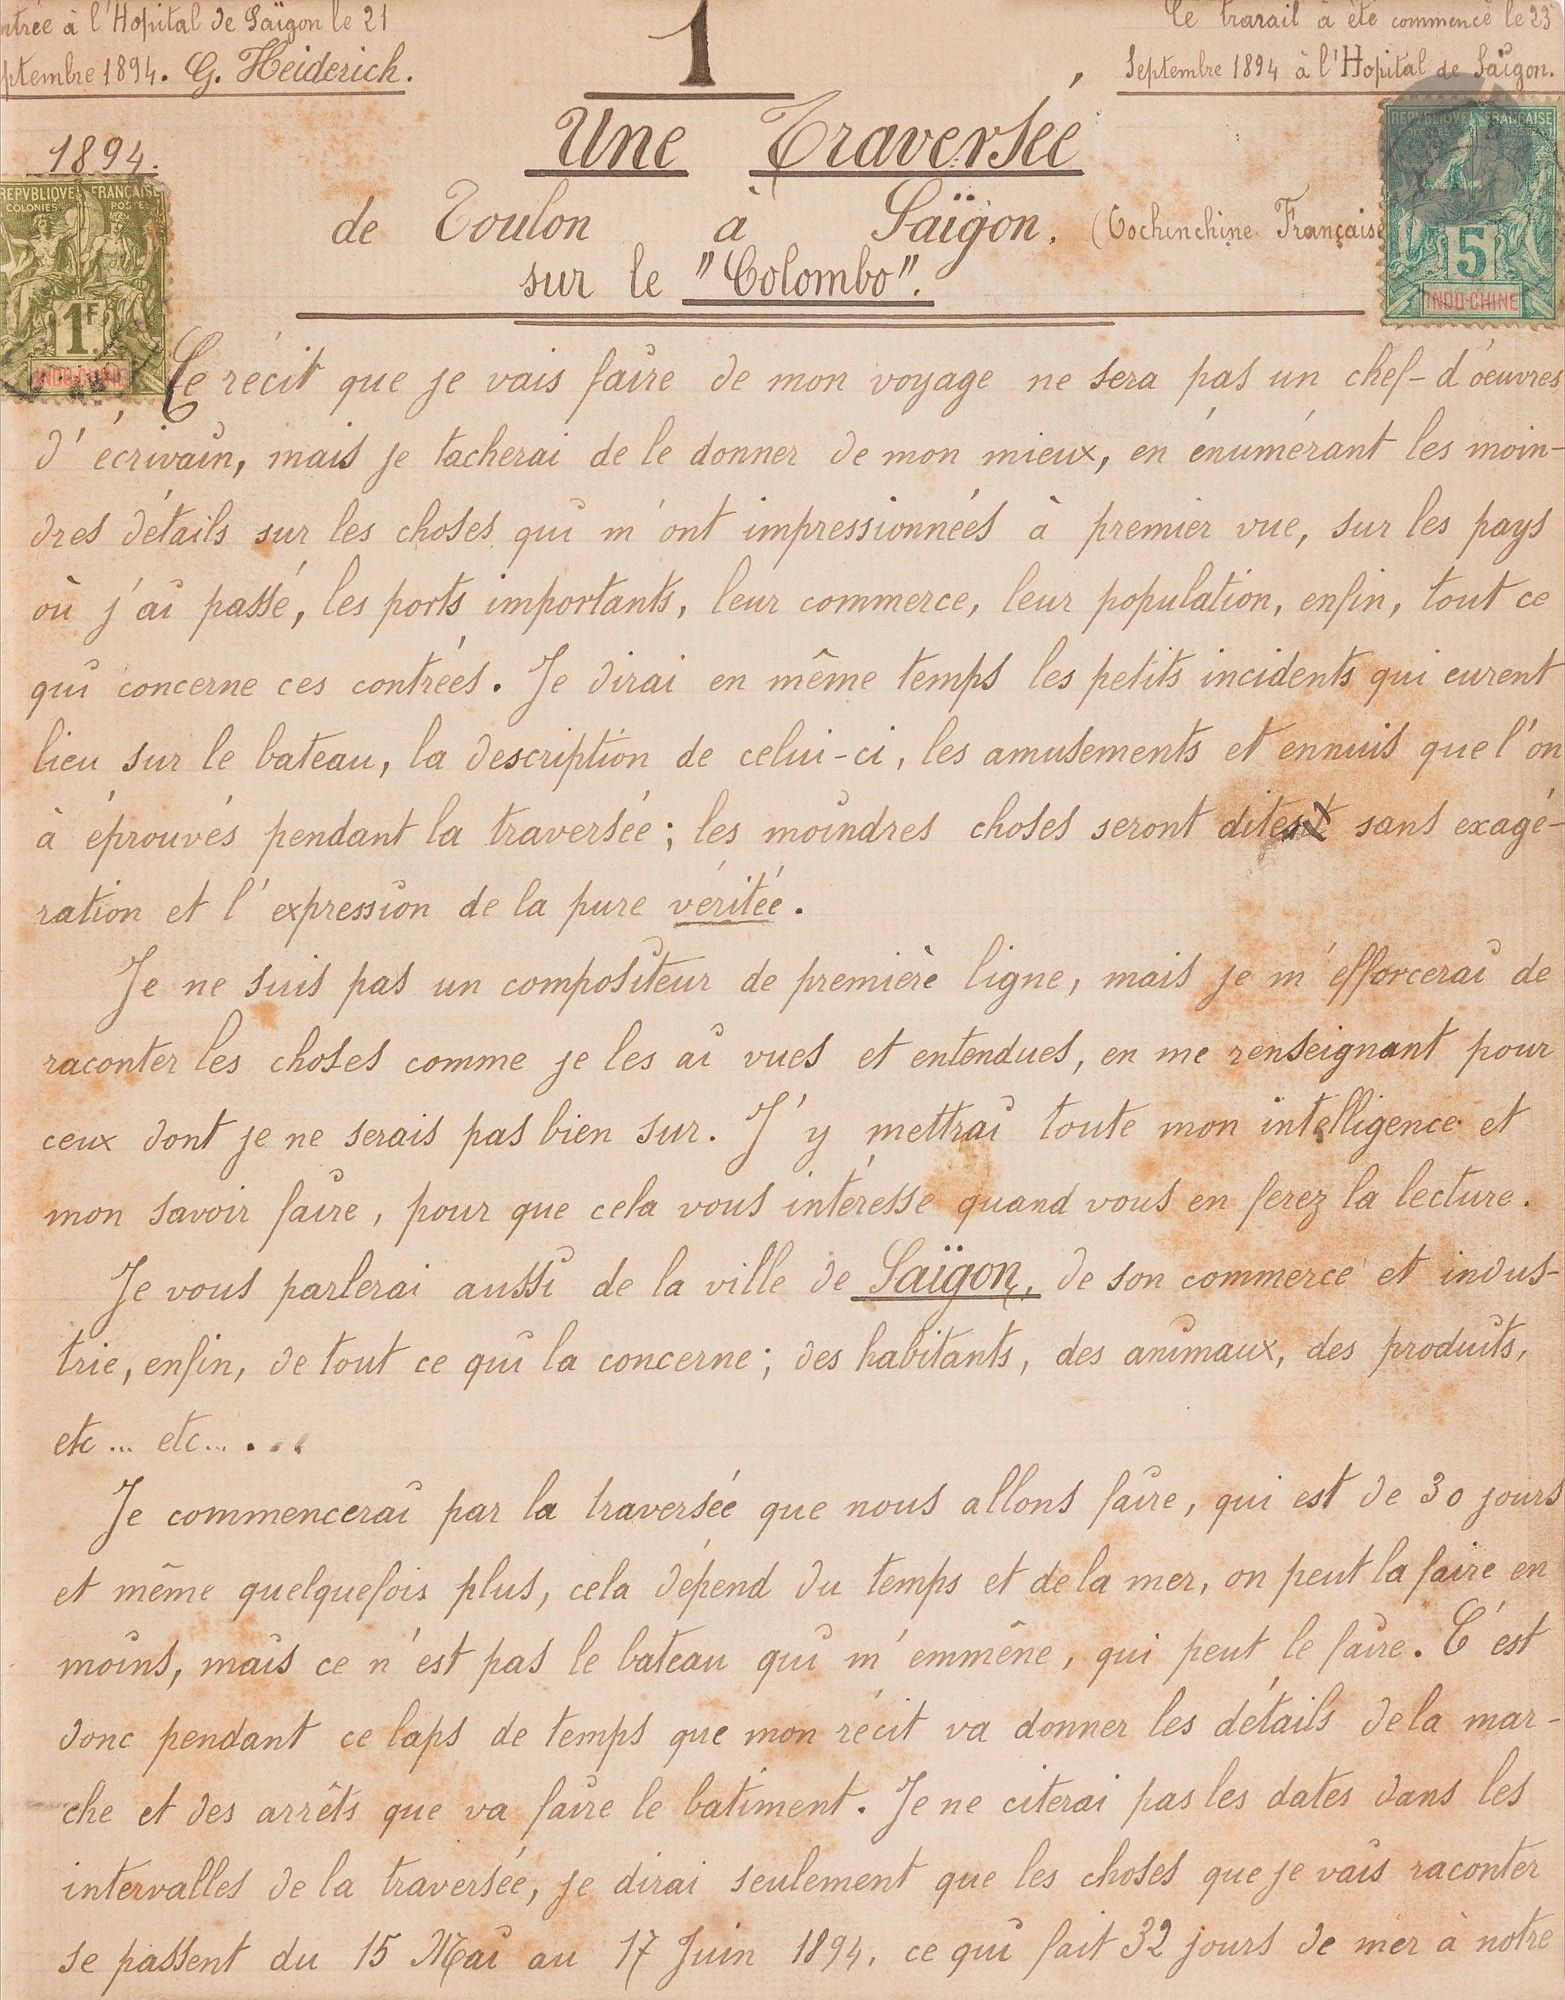 ntrée à l'Hopital de Saïgon le 21
ptembre 1894. G. Heiderich.
Ce travail à été commencé le 23
Septembre 1894 à l'Hopital de Saïgon.
1
1894.
Une Traversée
de Toulon à Saïgon. (Cochinchine Française
sur le "Colombo".
REPVBLIQVE FRANÇAISE
COLONIES POSTES
1F
INDO-CHINE
REPVBLIQVE FRANÇAISE
COLONIES
5
INDO-CHINE
Le récit que je vais faire de mon voyage ne sera pas un chef-d'oeuvres
d'écrivain, mais je tacherai de le donner de mon mieux, en énumérant les moin-
dres détails sur les choses qui m'ont impressionnées à premier vue, sur les pays
où j'ai passé, les ports importants, leur commerce, leur population, enfin, tout ce
qui concerne ces contrées. Je dirai en même temps les petits incidents qui eurent
lieu sur le bateau, la description de celui-ci, les amusements et ennuis que l'on
à éprouvés pendant la traversée; les moindres choses seront dites sans exagé-
ration et l'expression de la pure véritée.
Je ne suis pas un compositeur de première ligne, mais je m'éfforcerai de
raconter les choses comme je les ai vues et entendues, en me renseignant pour
ceux dont je ne serais pas bien sur. J'y mettrai toute mon intelligence et
mon savoir faire, pour que cela vous intéresse quand vous en ferez la lecture.
Je vous parlerai aussi de la ville de Saïgon, de son commerce et indus-
trie, enfin, de tout ce qui la concerne; des habitants, des animaux, des produits,
etc... etc......
Je commencerai par la traversée que nous allons faire, qui est de 30 jours
et même quelquefois plus, cela dépend du temps et de la mer, on peut la faire en
moins, mais ce n'est pas le bateau qui m'emmêne, qui peut le faire. C'est
donc pendant ce laps de temps que mon récit va donner les détails de la mar-
che et des arrêts que va faire le batiment. Je ne citerai pas les dates dans les
intervalles de la traversée, je dirai seulement que les choses que je vais raconter
se passent du 15 Mai au 17 Juin 1894, ce qui fait 32 jours de mer à notre